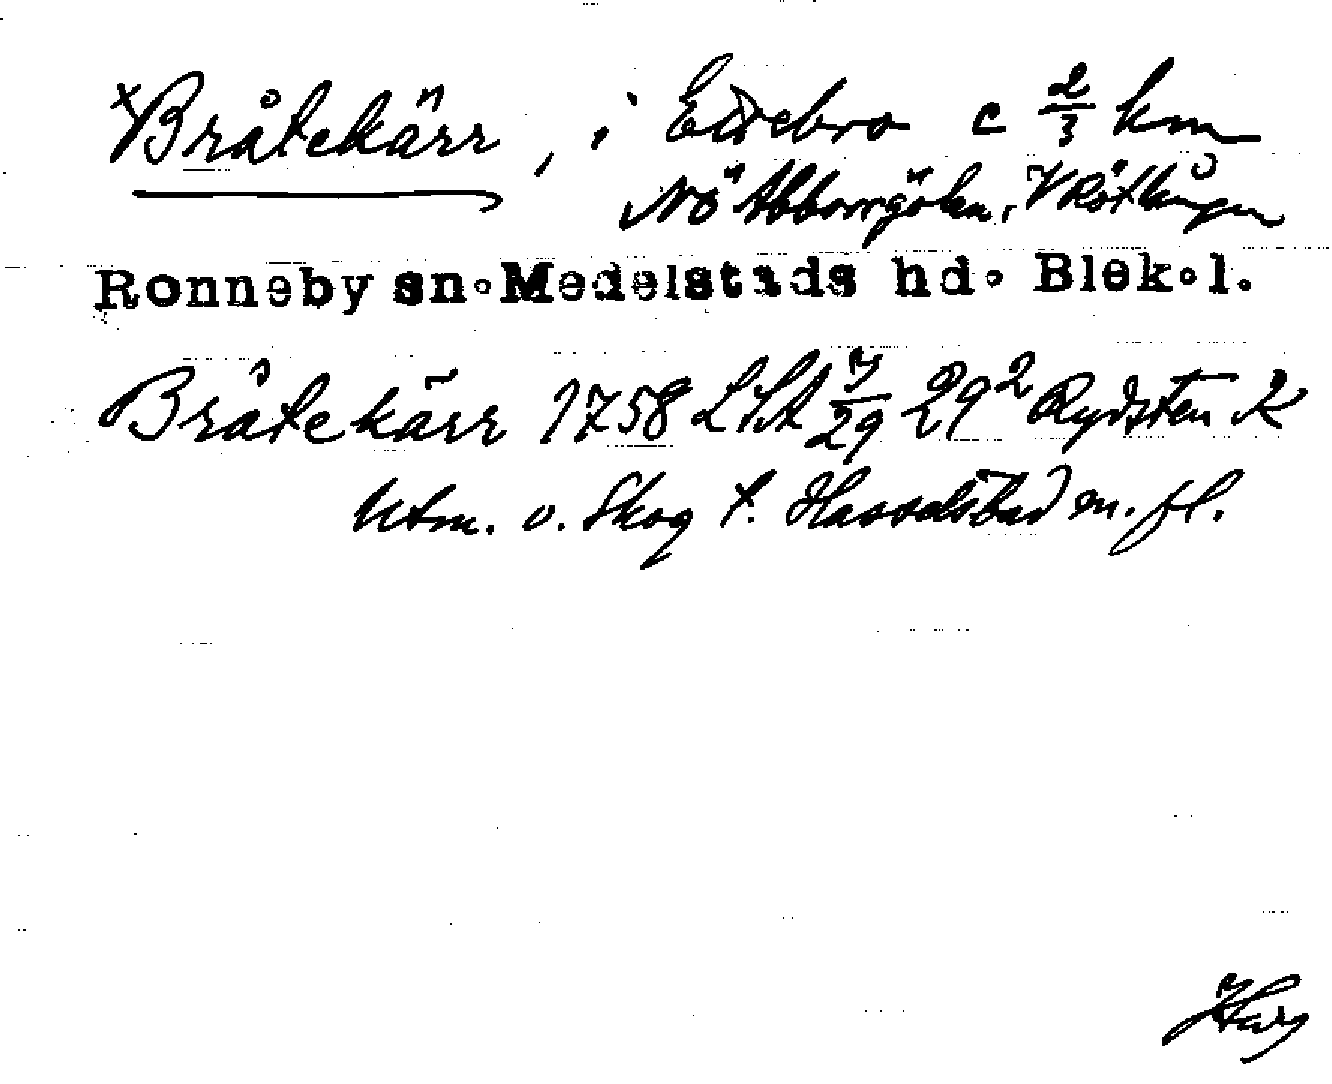 xBråtekärr, i Edrebro c 2/3 km
NÖ Abborrgölen, V Rötlången
Ronneby sn. Medelstads hd. Blek.l.
Bråtekärr 1758 LStA 7/29 29² Rydsten K
Utm. o. Skog t. Hasselstad m. fl.